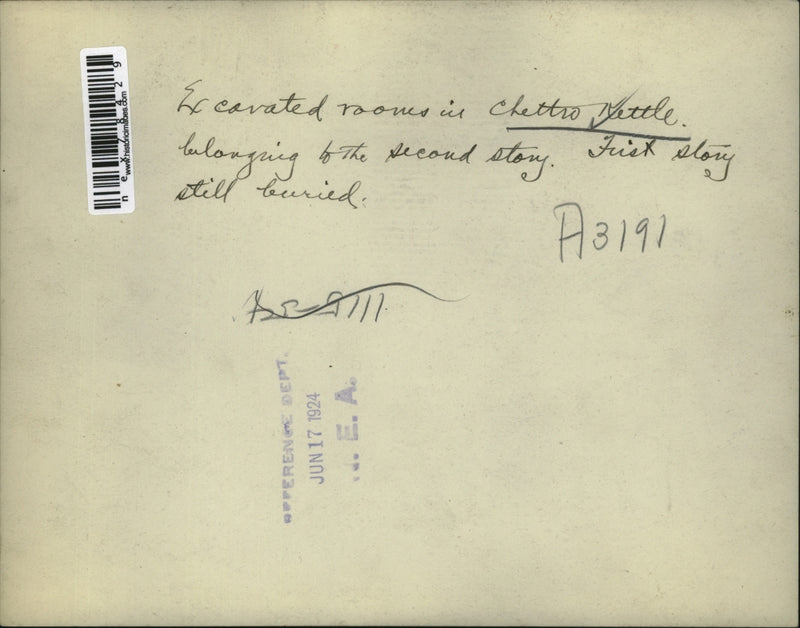 Excavated rooms in Chettro Kettle.
belonging to the second story. First story
still buried.
A3191
REFERENCE DEPT.
JUN 17 1924
N. E. A.
nex78429
www.historicimages.com